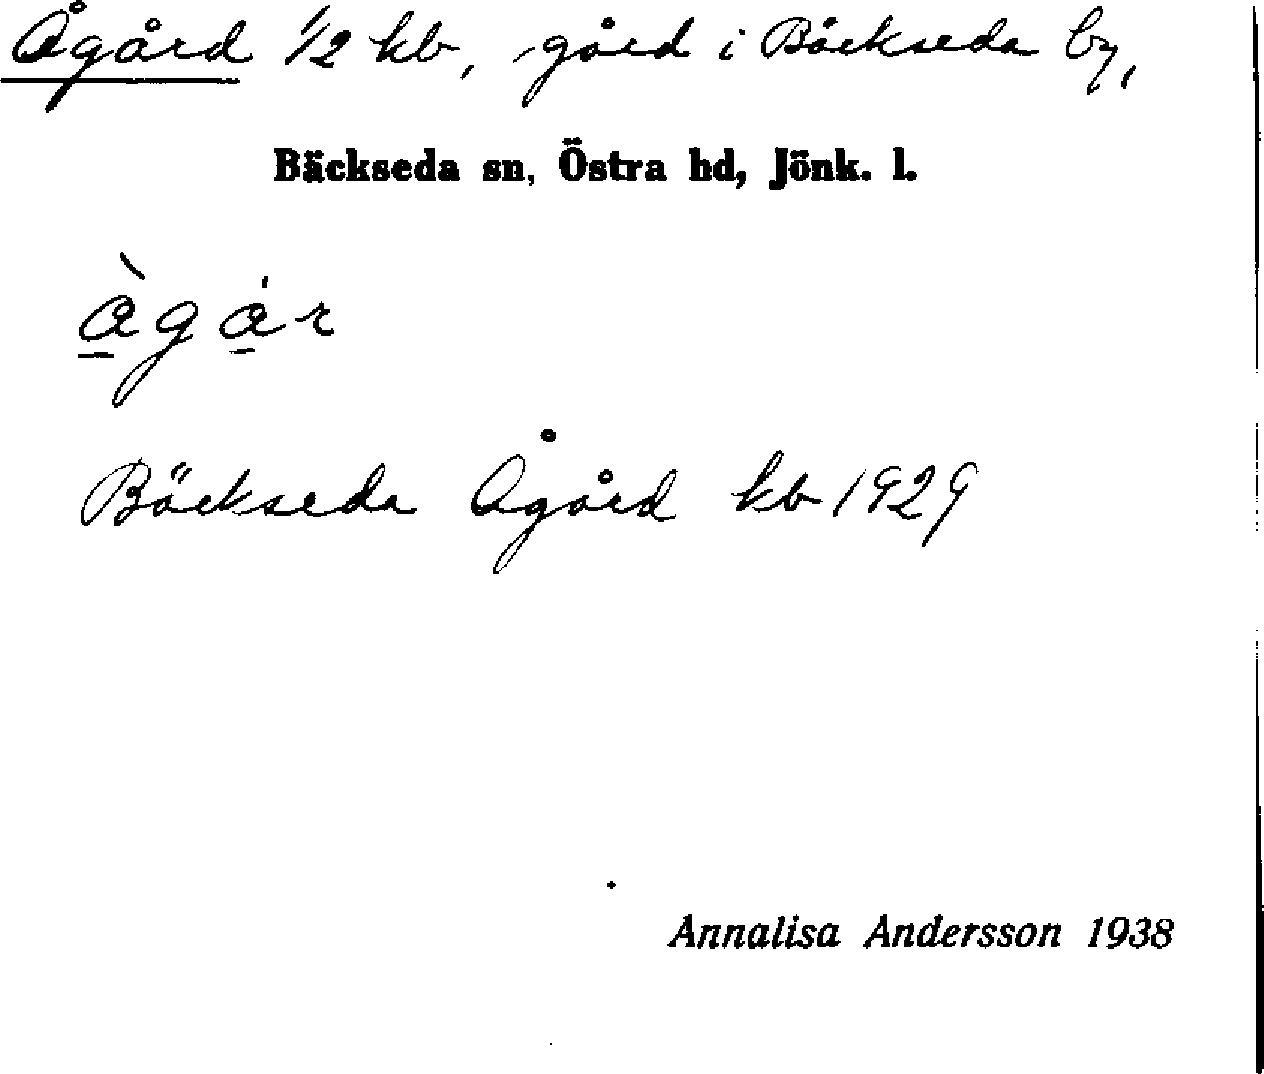 Ågård 1/2 kb, gård i Bäckseda by,
Bäckseda sn, Östra hd, Jönk. l.
à̱gá̱r
Bäckseda Ågård kb 1929
Annalisa Andersson 1938